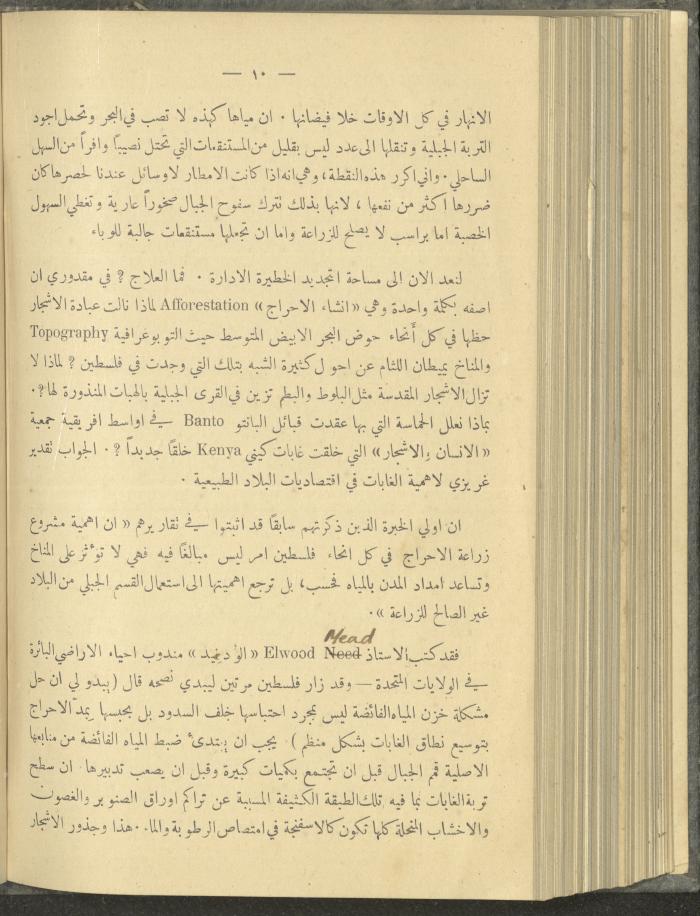 — ١٠ —
الانهار في كل الاوقات خلا فيضانها ٠ ان مياها كهذه لا تصب في البحر وتحمل اجود
التربة الجبلية وتنقلها الى عدد ليس بقليل من المستنقعات التي تحتل نصيباً وافراً من السهل
الساحلي ٠ واني اكرر هذه النقطة ، وهي انه اذا كانت الامطار لا وسائل عندنا لحصرها كان
ضررها اكثر من نفعها ، لانها بذلك نترك سفوح الجبال صخوراً عارية وتغطي السهول
الخصبة اما براسب لا يصلح للزراعة واما ان تجعلها مستنقعات جالبة للوباء
لنعد الان الى مساحة التجديد الخطيرة الادارة ٠ فما العلاج ؟ في مقدوري ان
اصفه بكلمة واحدة وهي « انشاء الاحراج » Afforestation لماذا نالت عبادة الاشجار
حظها في كل أنحاء حوض البحر الابيض المتوسط حيث التوبوغرافية Topography
والمناخ يميطان اللثام عن احول كثيرة الشبه بتلك التي وجدت في فلسطين ؟ لماذا لا
تزال الاشجار المقدسة مثل البلوط والبطم تزين في القرى الجبلية بالهبات المنذورة لها ؟ ٠
بماذا نعلل الحماسة التي بها عقدت قبائل البانتو Banto في اواسط افريقية جمعية
« الانسان والاشجار » التي خلقت غابات كيني Kenya خلقاً جديداً ؟ ٠ الجواب تقدير
غريزي لاهمية الغابات في اقتصاديات البلاد الطبيعية ٠
ان اولي الخبرة الذين ذكرتهم سابقاً قد اثبتوا في تقاريرهم « ان اهمية مشروع
زراعة الاحراج في كل انحاء فلسطين امر ليس مبالغاً فيه فهي لا تؤثر على المناخ
وتساعد امداد المدن بالمياه فحسب ، بل ترجع اهميتها الى استعمال القسم الجبلي من البلاد
غير الصالح للزراعة » ٠
Mead
فقد كتب الاستاذ Elwood Need مندوب احياء الاراضي البائرة
في الولايات المتحدة — وقد زار فلسطين مرتين ليبدي نصحه قال ( يبدو لي ان حل
مشكلة خزن المياه الفائضة ليس لمجرد احتباسها خلف السدود بل بحبسها بمد الاحراج
بتوسيع نطاق الغابات بشكل منظم ) ٠ يجب ان يبتدئ ضبط المياه الفائضة من منابعها
الاصلية قمم الجبال قبل ان تجتمع بكميات كبيرة وقبل ان يصعب تدبيرها ٠ ان سطح
تربة الغابات بما فيه تلك الطبقة الكثيفة المسببة عن تراكم اوراق الصنوبر والغصون
والاخشاب المنحلة كلها تكون كالاسفنجة في امتصاص الرطوبة والماء ٠ هذا وجذور الاشجار